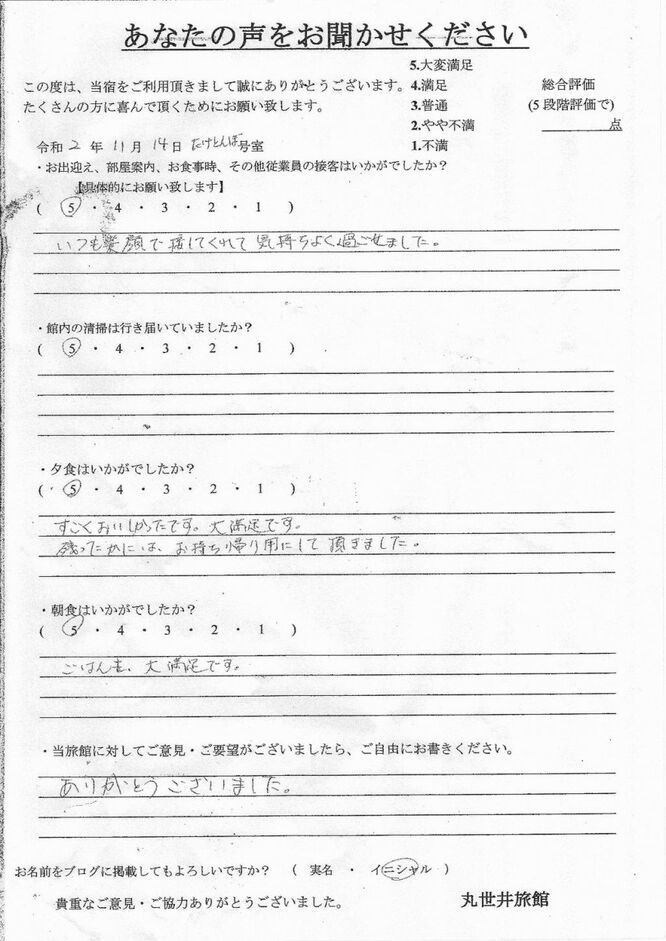 あなたの声をお聞かせください
この度は、当宿をご利用頂きまして誠にありがとうございます。
たくさんの方に喜んで頂くためにお願い致します。
5.大変満足
4.満足
3.普通
2.やや不満
1.不満
総合評価
(5段階評価で)
点
令和2年11月14日たけとんぼ号室
・お出迎え、部屋案内、お食事時、その他従業員の接客はいかがでしたか?
【具体的にお願い致します】
( 5 ・ 4 ・ 3 ・ 2 ・ 1 )
いつも笑顔で接してくれて気持ちよく過ごせました。
・館内の清掃は行き届いていましたか?
( 5 ・ 4 ・ 3 ・ 2 ・ 1 )
・夕食はいかがでしたか?
( 5 ・ 4 ・ 3 ・ 2 ・ 1 )
すごくおいしかったです。大満足です。
残ったかには、お持ち帰り用にして頂きました。
・朝食はいかがでしたか?
( 5 ・ 4 ・ 3 ・ 2 ・ 1 )
ごはんも、大満足です。
・当旅館に対してご意見・ご要望がございましたら、ご自由にお書きください。
ありがとうございました。
お名前をブログに掲載してもよろしいですか? ( 実名 ・ イニシャル )
貴重なご意見・ご協力ありがとうございました。
丸世井旅館